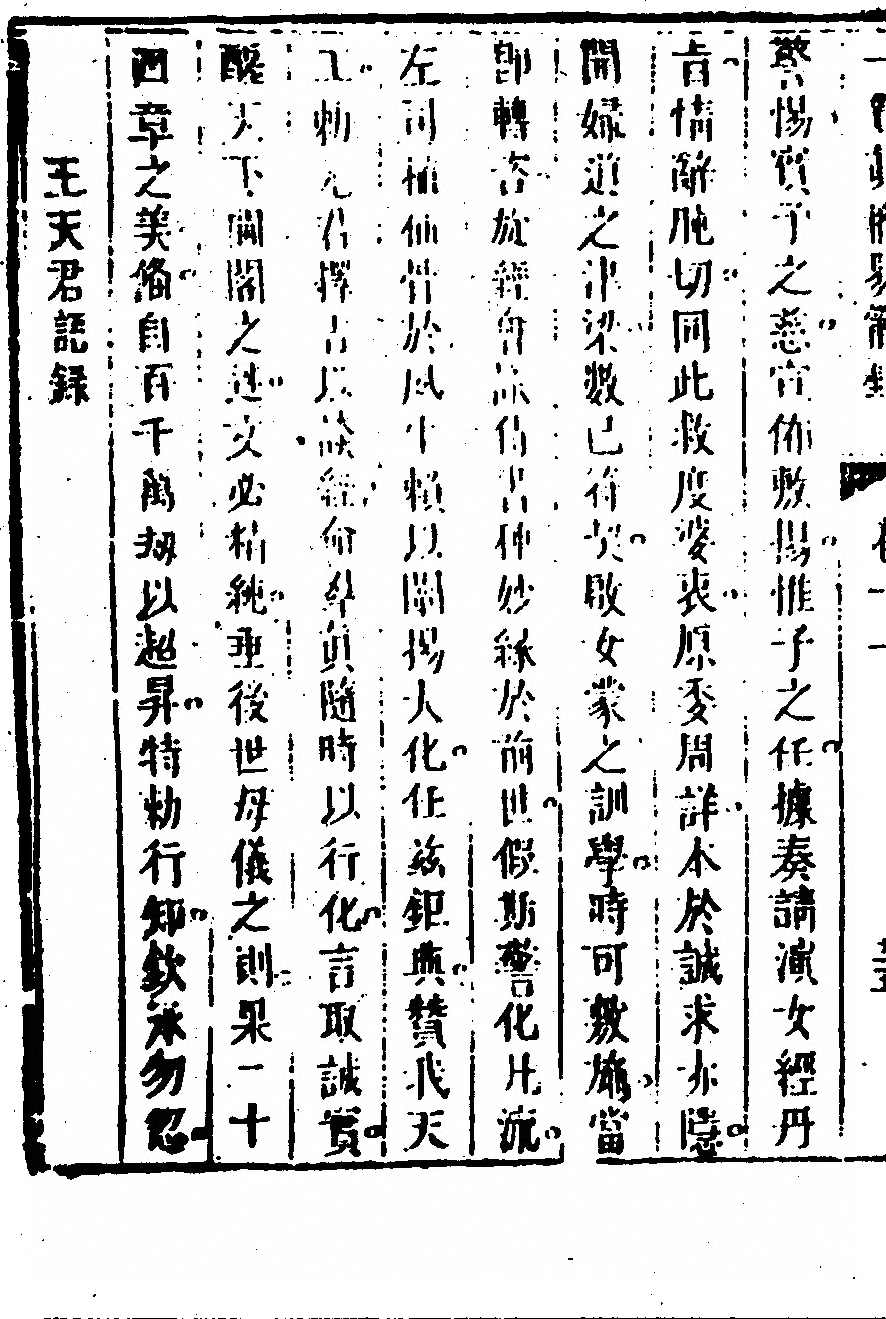 警惕寶子之慈宣佈敷揚惟子之任據奏請演女經丹
旨情辭肫切同此救度婆衷原委周詳本於誠求亦隱
開婦道之津梁數已符契啟女蒙之訓學時可敷施當
即轉咨於經
妙緣於前世假斯警化片流
左司
仙骨於風
賴以闡揚大化任茲鉅典贊我天
工勅元君擇吉以談經命羣真隨時以行化言取誠實
醒天下閨閣之迷文必精純垂後世母儀之則果一十
四章之美備自百千萬劫以超昇特勅行知欽承勿忽
王天君語錄